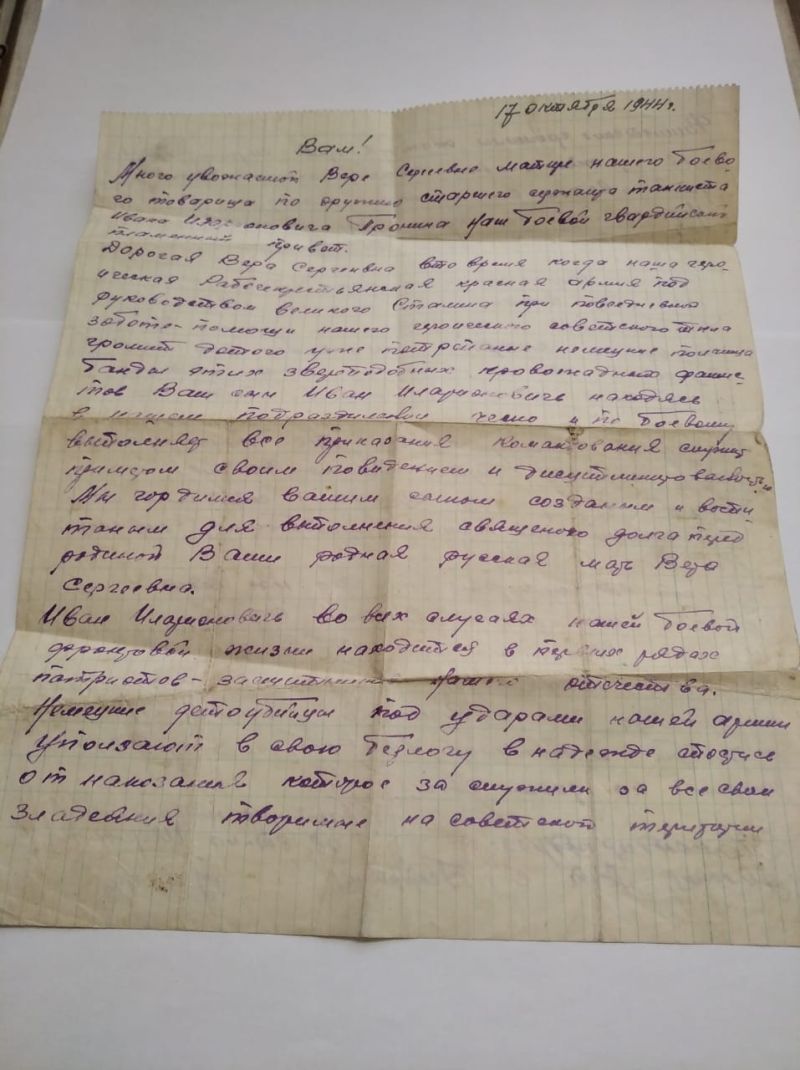 17 октября 1944 г.
Вам!
Много уважаемой Вере Сергеевне матере нашего боево-
го товарища по оружию старшего сержанта танкиста
Ивана Иларионовича Пронина наш боевой гвардийский
пламенный привет.
Дорогая Вера Сергеевна вто время когда наша геро-
ическая Рабочекрестьянская красная армия под
руководством великого Сталина при повседневной
заботе-помощи нашего героического советского тыла
громит дотого уже потрепанные немецкие полчища
банды этих звероподобных кровожадных фашис-
тов Ваш сын Иван Иларионовичь находясь
в нашем подразделении чесно и по боевому
выполняет все приказания командования служит
примером своим поведением и
Мы гордимся вашим сыном созданым и воспи-
таным для выполнения священого долга перед
родиной Вами родная русская мать Вера
Сергеевна.
Иван Иларионовичь во всех случаях нашей боевой
фронтовой жизни находится в первых рядах
патриотов- нашего отечества.
Немецкие детоубийцы под ударами нашей армии
уползают в свою берлогу в надежде спастись
от наказания которое заслужили за все свои
зладеяния творимые на советской територии